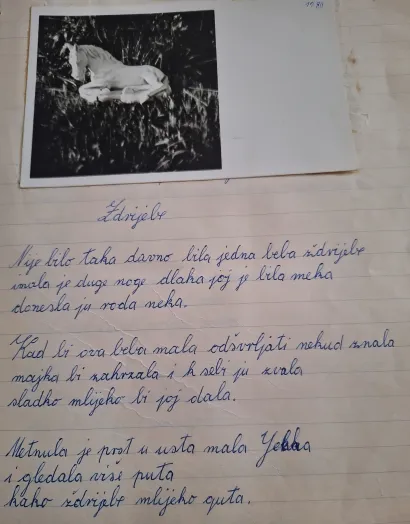 Ždrijebe
Nije bilo taka davno bila jedna beba ždrijebe
imala je duge noge dlaka joj je bila meka
donesla ju roda neka.
Kad bi ova beba mala odšvrljati nekud znala
majka bi zahrzala i k sebi ju zvala
sladko mlijeko bi joj dala.
Metnula je prst u usta mala
i gledala više puta
kako ždrijebe mlijeko guta.